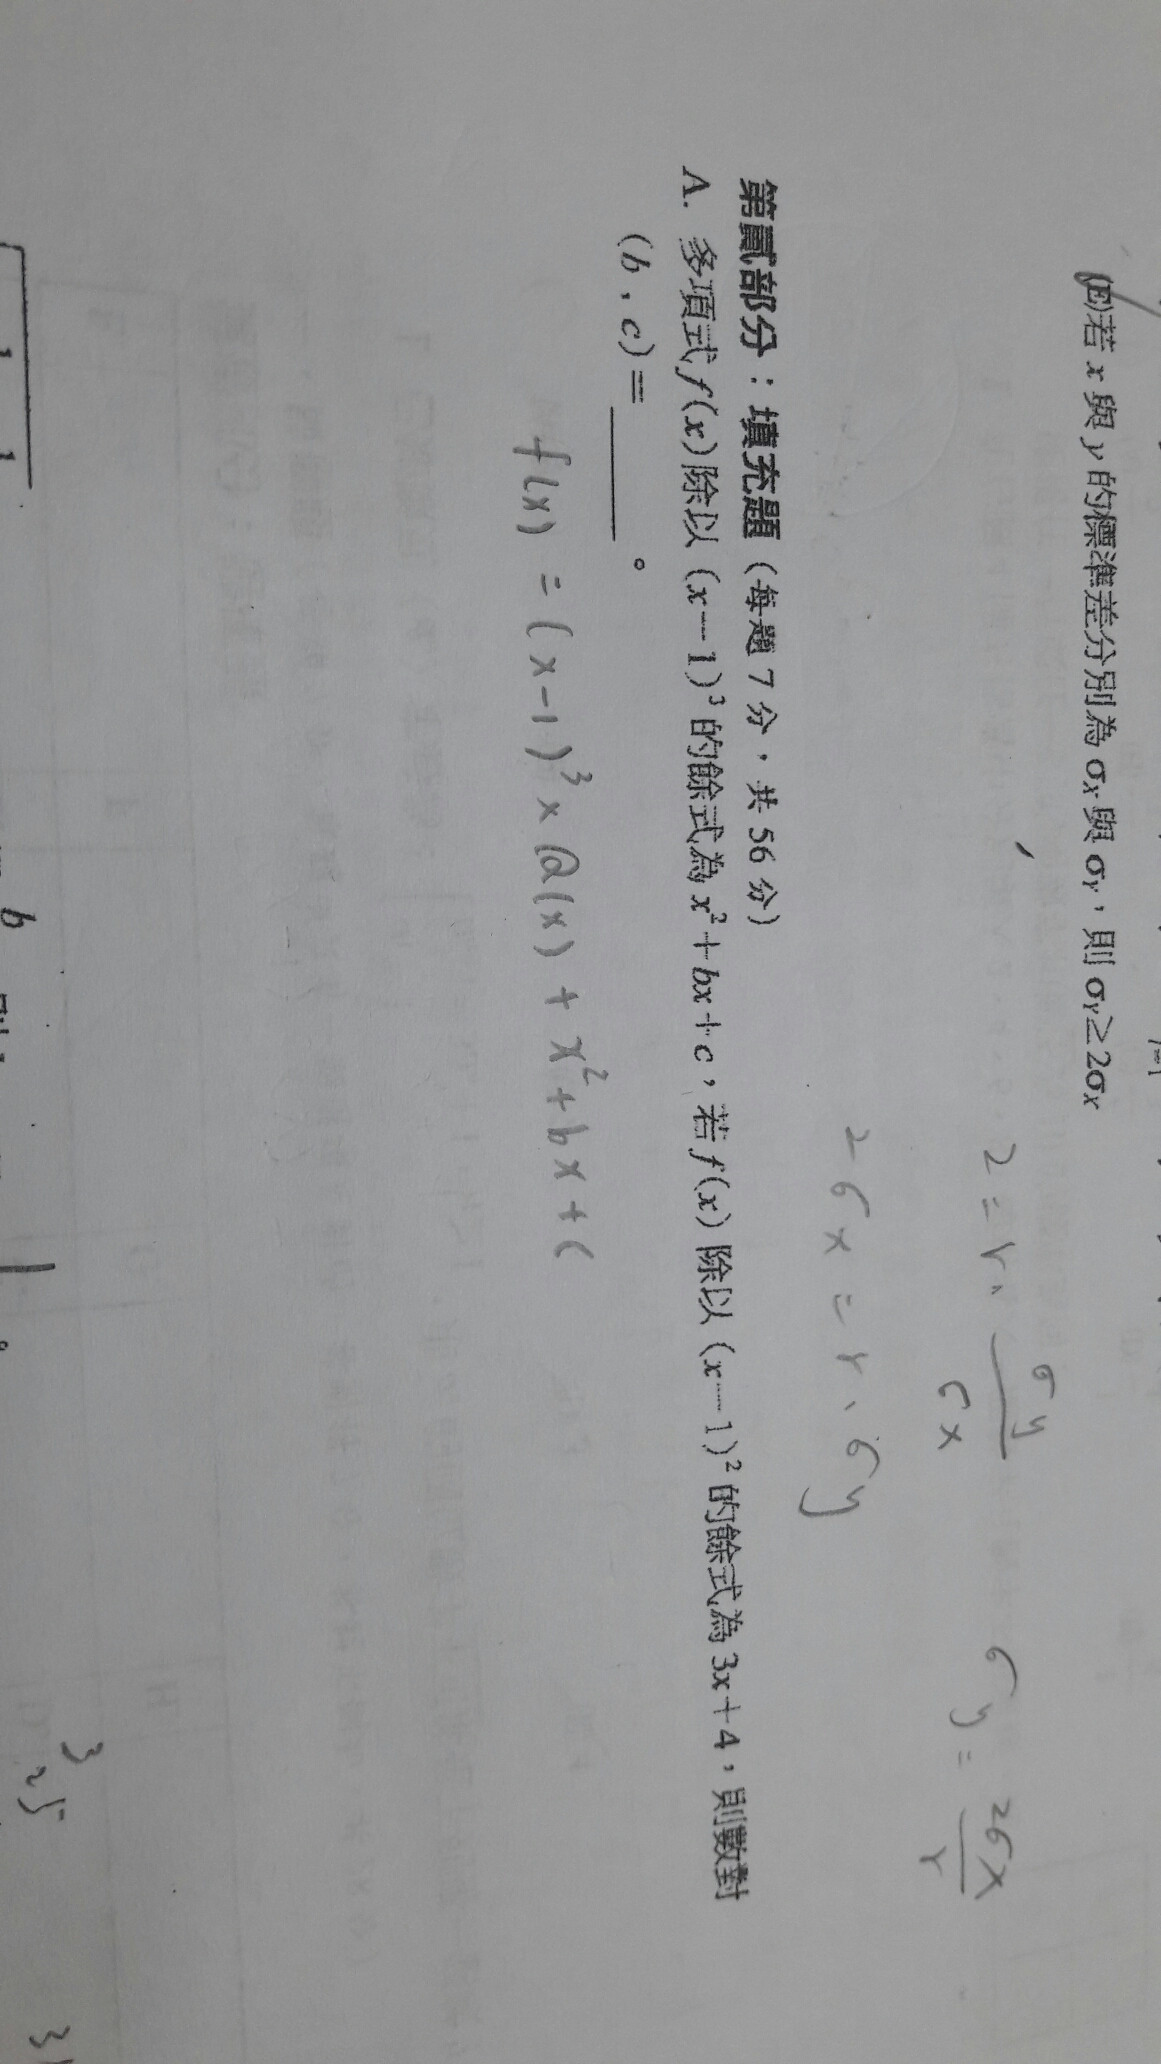 (E)若 x 與 y 的標準差分別為 σx 與 σy，則 σy≥2σx
2 = r · σy / σx
σy = 2σx / r
2σx = r · σy
第貳部分：填充題（每題 7 分，共 56 分）
A. 多項式 f(x) 除以 (x－1)³ 的餘式為 x²＋bx＋c，若 f(x) 除以 (x－1)² 的餘式為 3x＋4，則數對
(b，c)＝______。
f(x) = (x-1)³ × Q(x) + x² + bx + c
b
3